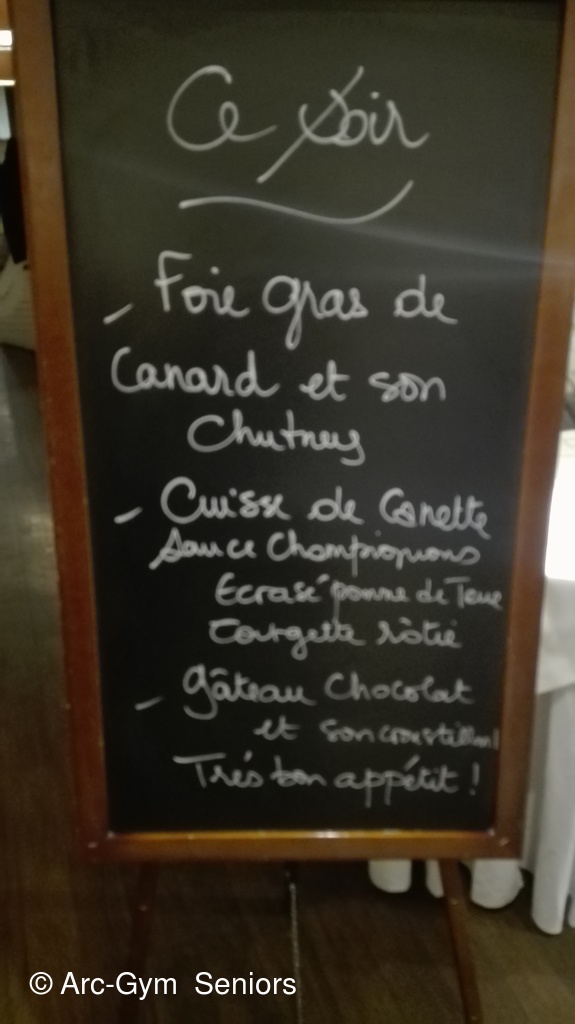 Ce Soir
- Foie gras de
Canard et son
Chutney
- Cuisse de Canette
Sauce Champignons
Ecrasé pomme de Terre
Courgette rôtie
- Gâteau Chocolat
et son croustillant
Très bon appétit !
© Arc-Gym Seniors